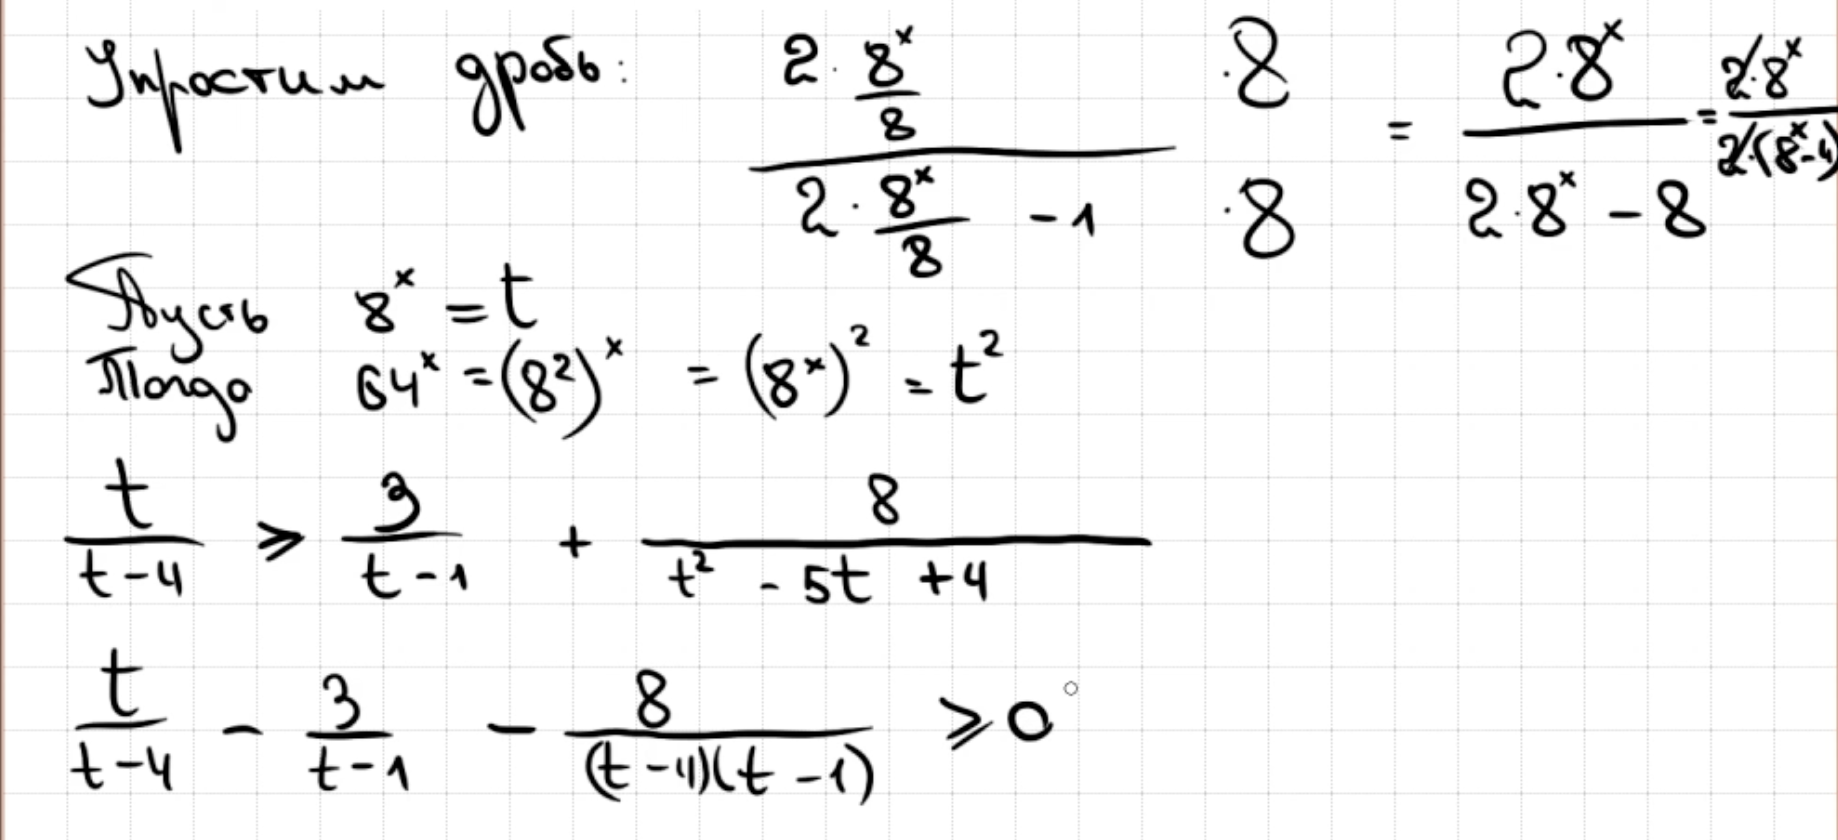 Упростим дробь: (2·8^x/8)/(2·8^x/8 - 1) ·8/·8 = (2·8^x)/(2·8^x - 8) = (2·8^x)/(2·(8^x-4))
Пусть 8^x = t
Тогда 64^x = (8^2)^x = (8^x)^2 = t^2
t/(t-4) ⩾ 3/(t-1) + 8/(t^2 - 5t + 4)
t/(t-4) - 3/(t-1) - 8/((t-4)(t-1)) ⩾ 0